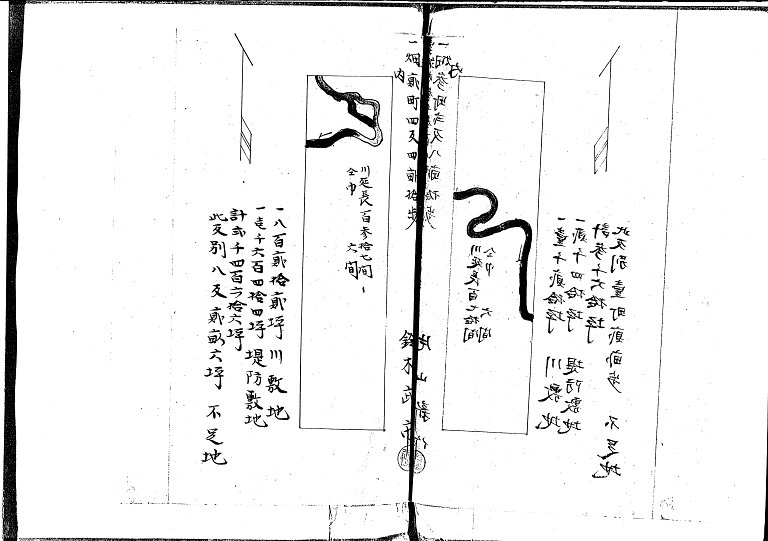 一畑参町弐反八畝拾歩
内
川延長百七拾間
仝巾 六間
一壹千貳拾坪 川敷地
一貳千四拾坪 堤防敷地
計参千六拾坪
此反別壹町貳畝歩 不足地
一畑貳町四反四畝拾歩
内
鈴木武
川延長百参拾七間
仝巾 六間
一八百貳拾貳坪 川敷地
一壱千六百四拾四坪 堤防敷地
計弐千四百六拾六坪
此反別八反貳畝六坪 不足地